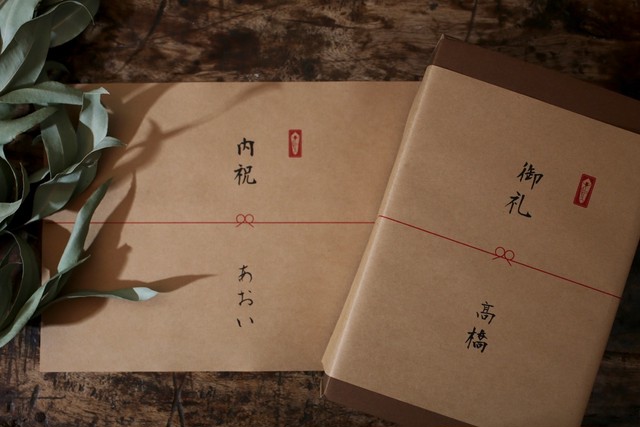 内祝
あおい
御礼
高橋